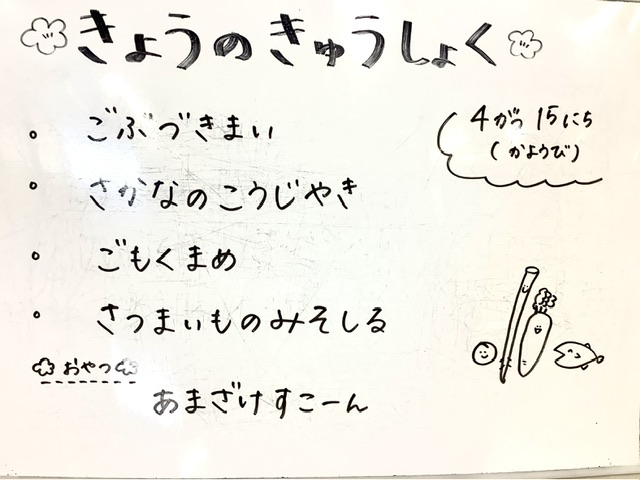 きょうのきゅうしょく
4がつ15にち
(かようび)
ごぶづきまい
さかなのこうじやき
ごもくまめ
さつまいものみそしる
おやつ
あまざけすこーん